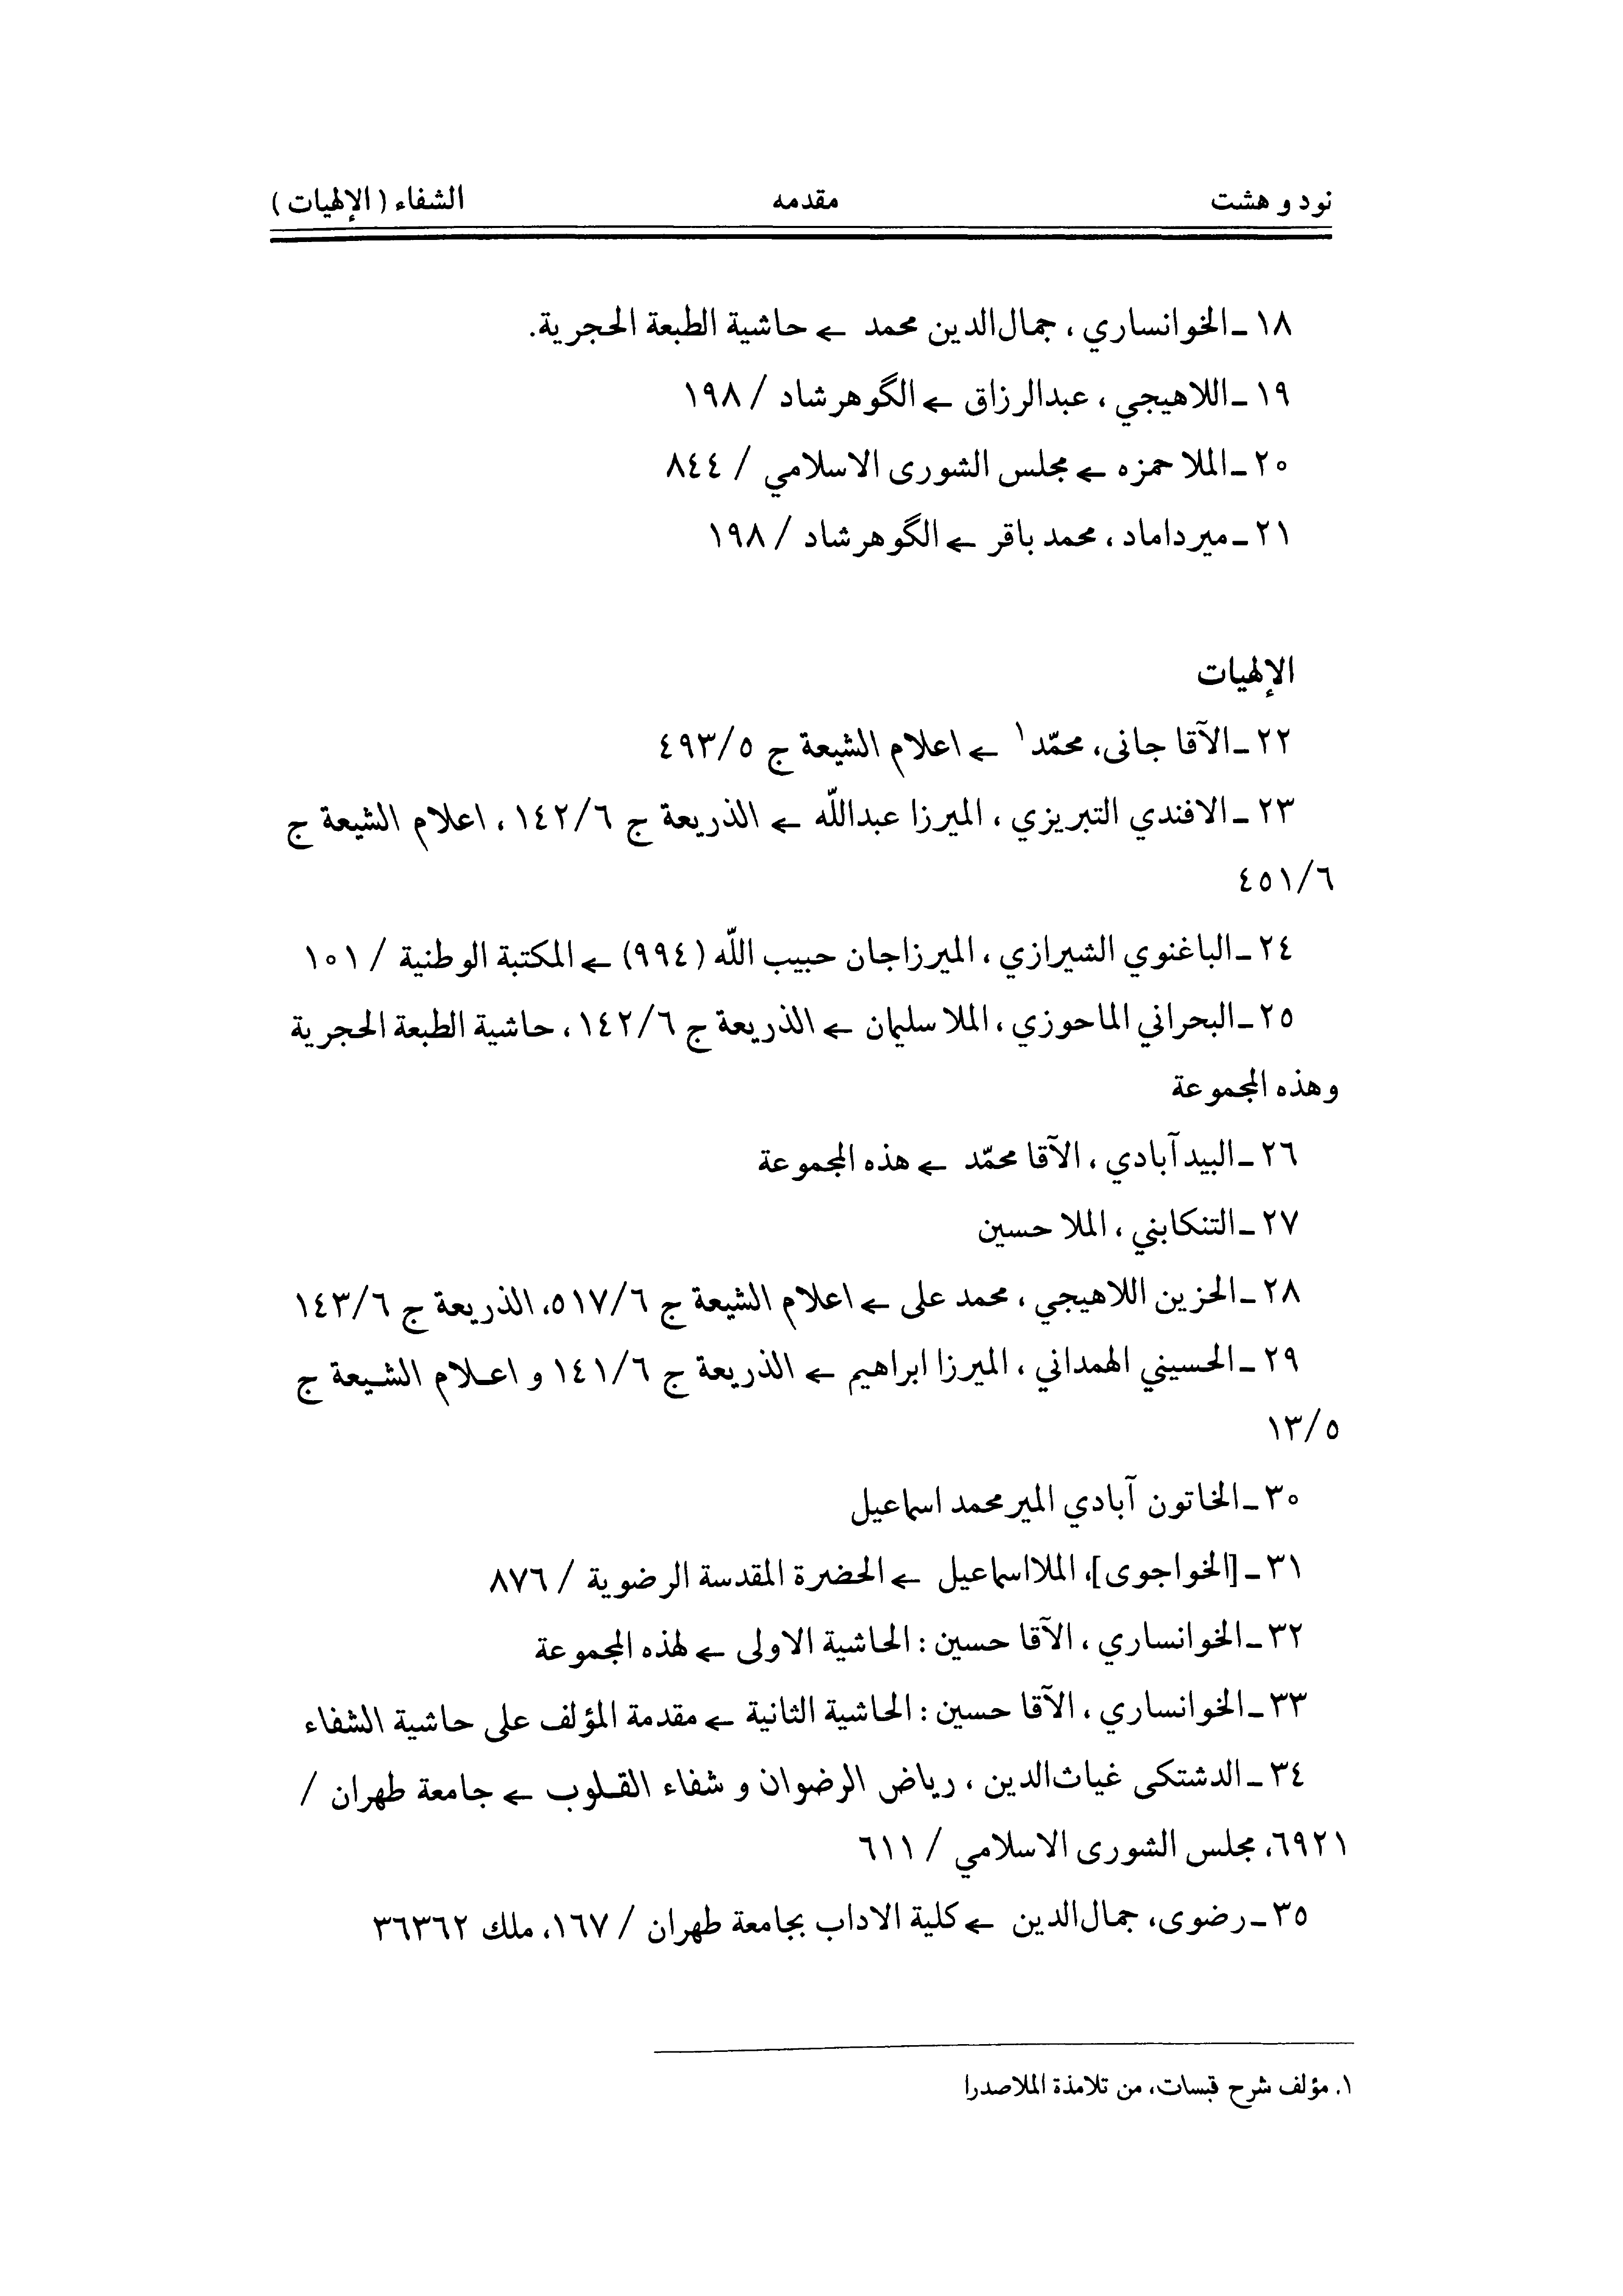 نود و هشت مقدمه الشفاء ( الإلهيات )
١٨ ـ الخوانساري ، جمال‌الدين محمد ← حاشية الطبعة الحجرية.
١٩ ـ اللاهيجي ، عبدالرزاق ← الگوهرشاد / ١٩٨
٢٠ ـ الملا حمزه ← مجلس الشورى الاسلامي / ٨٤٤
٢١ ـ ميرداماد ، محمد باقر ← الگوهرشاد / ١٩٨
الإلهيات
٢٢ ـ الآقا جانى، محمّد١ ← اعلام الشيعة ج ٤٩٣/٥
٢٣ ـ الافندي التبريزي ، الميرزا عبداللّه ← الذريعة ج ١٤٢/٦ ، اعلام الشيعة ج
٤٥١/٦
٢٤ ـ الباغنوي الشيرازي ، الميرزاجان حبيب اللّه (٩٩٤) ← المكتبة الوطنية / ١٠١
٢٥ ـ البحراني الماحوزي ، الملا سليمان ← الذريعة ج ١٤٢/٦ ، حاشية الطبعة الحجرية
وهذه المجموعة
٢٦ ـ البيدآبادي ، الآقا محمّد ← هذه المجموعة
٢٧ ـ التنكابني ، الملا حسين
٢٨ ـ الحزين اللاهيجي ، محمد على ← اعلام الشيعة ج ٥١٧/٦، الذريعة ج ١٤٣/٦
٢٩ ـ الحسيني الهمداني ، الميرزا ابراهيم ← الذريعة ج ١٤١/٦ و اعـلام الشـيعة ج
١٣/٥
٣٠ ـ الخاتون آبادي المير محمد اسماعيل
٣١ ـ [الخواجوى]، الملااسماعيل ← الحضرة المقدسة الرضوية / ٨٧٦
٣٢ ـ الخوانساري ، الآقا حسين : الحاشية الاولى ← لهذه المجموعة
٣٣ ـ الخوانساري ، الآقا حسين : الحاشية الثانية ← مقدمة المؤلف على حاشية الشفاء
٣٤ ـ الدشتكى غياث‌الدين ، رياض الرضوان و شفاء القـلوب ← جامعة طهران /
٦٩٢١، مجلس الشورى الاسلامي / ٦١١
٣٥ ـ رضوى، جمال‌الدين ← كلية الاداب بجامعة طهران / ١٦٧، ملك ٣٦٣٦٢
١. مؤلف شرح قبسات، من تلامذة الملاصدرا